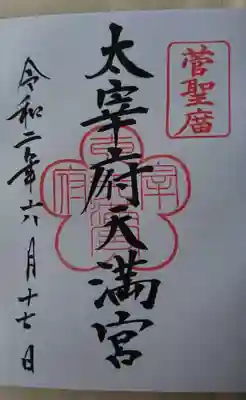 菅聖暦
太宰府天満宮
令和二年六月十七日